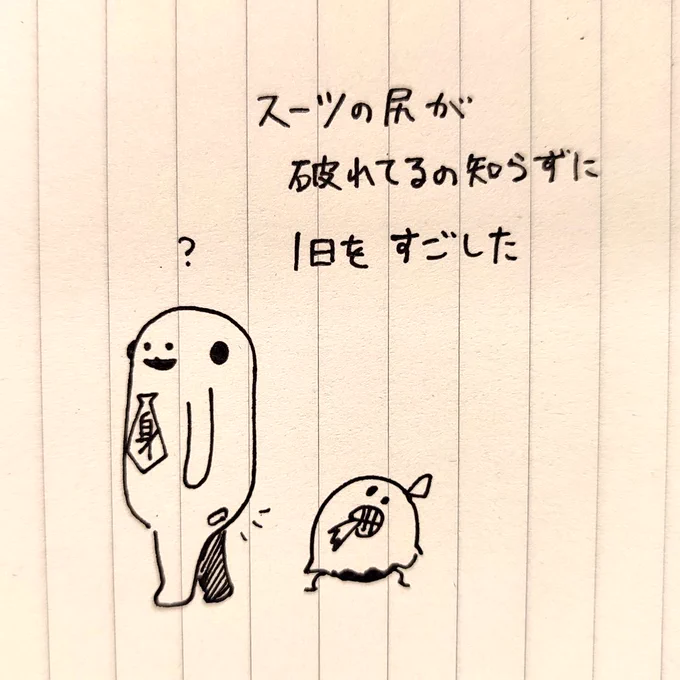 スーツの尻が
破れてるの知らずに
1日をすごした
?
身